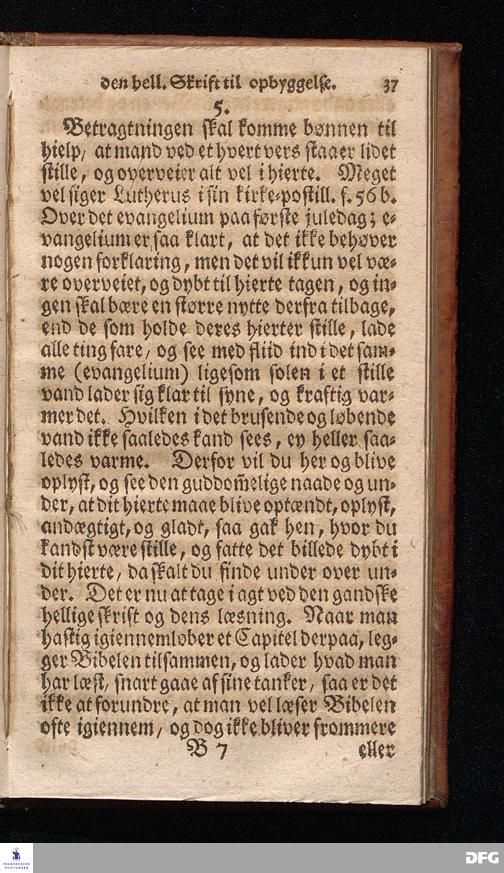 den hell. Skrift til opbyggelse. 37
5.
Betragtningen skal komme bønnen til
hielp, at mand ved et hvert vers staaer lidet
stille, og overveier alt vel i hierte. Meget
vel siger Lutherus i sin kirke-postill. f. 56 b.
Over det evangelium paa første juledag; e-
vangelium er saa klart, at det ikke behøver
nogen forklaring, men det vil ikkun vel væ-
re overveiet, og dybt til hierte tagen, og in-
gen skal bære en større nytte derfra tilbage,
end de som holde deres hierter stille, lade
alle ting fare, og see med fliid ind i det sam-
me (evangelium) ligesom solen i et stille
vand lader sig klar til syne, og kraftig var-
mer det. Hvilken i det brusende og løbende
vand ikke saaledes kand sees, ey heller saa-
ledes varme. Derfor vil du her og blive
oplyst, og see den guddom̃elige naade og un-
der, at dit hierte maae blive optændt, oplyst,
andægtigt, og gladt, saa gak hen, hvor du
kandst være stille, og fatte det billede dybt i
dit hierte, da skalt du finde under over un-
der. Det er nu at tage i agt ved den gandske
hellige skrift og dens læsning. Naar man
hastig igiennemløber et Capitel derpaa, leg-
ger Bibelen tilsammen, og lader hvad man
har læst, snart gaae af sine tanker, saa er det
ikke at forundre, at man vel læser Bibelen
ofte igiennem, og dog ikke bliver frommere
B 7 eller
FRANCKESCHE STIFTUNGEN
DFG